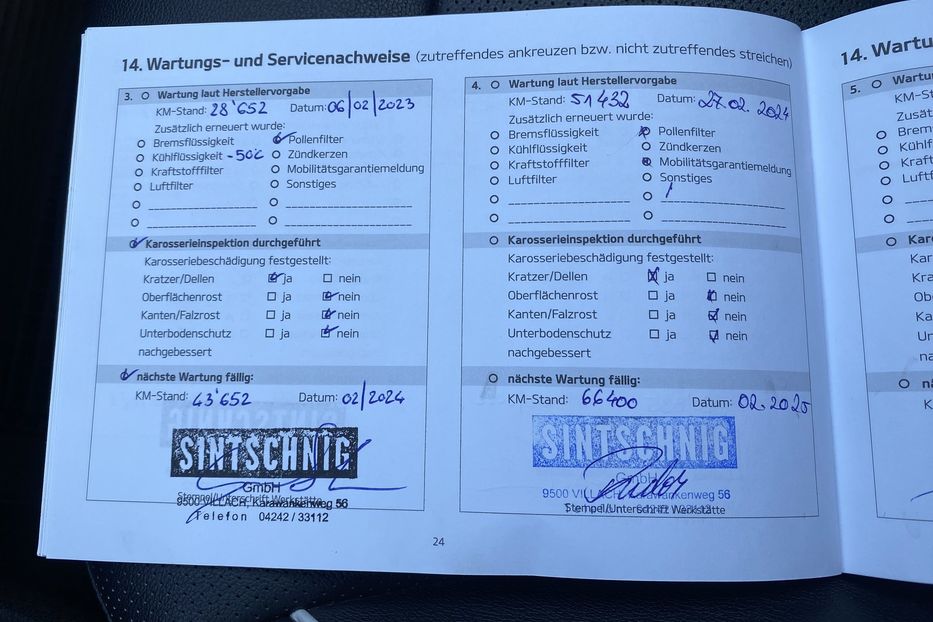 14. Wartungs- und Servicenachweise (zutreffendes ankreuzen bzw. nicht zutreffendes streichen)
3. Wartung laut Herstellervorgabe
KM-Stand: 28'652 Datum: 06/02/2023
Zusätzlich erneuert wurde:
Bremsflüssigkeit Pollenfilter
Kühlflüssigkeit -50°C Zündkerzen
Kraftstofffilter Mobilitätsgarantiemeldung
Luftfilter Sonstiges
Karosserieinspektion durchgeführt
Karosseriebeschädigung festgestellt:
Kratzer/Dellen ja nein
Oberflächenrost ja nein
Kanten/Falzrost ja nein
Unterbodenschutz ja nein
nachgebessert
nächste Wartung fällig:
KM-Stand: 43'652 Datum: 02/2024
SINTSCHNIG
GmbH
Stempel/Unterschrift Werkstätte
9500 VILLACH, Karawankenweg 56
Telefon 04242 / 33112
4. Wartung laut Herstellervorgabe
KM-Stand: 51432 Datum: 27.02.2024
Zusätzlich erneuert wurde:
Bremsflüssigkeit Pollenfilter
Kühlflüssigkeit Zündkerzen
Kraftstofffilter Mobilitätsgarantiemeldung
Luftfilter Sonstiges
Karosserieinspektion durchgeführt
Karosseriebeschädigung festgestellt:
Kratzer/Dellen ja nein
Oberflächenrost ja nein
Kanten/Falzrost ja nein
Unterbodenschutz ja nein
nachgebessert
nächste Wartung fällig:
KM-Stand: 66400 Datum: 02.2025
SINTSCHNIG
GmbH
9500 VILLACH, Karawankenweg 56
Stempel/Unterschrift Werkstätte
24
14. Wartu
5. Wartu
KM-S
Zusät
Brem
Kühlf
Kraft
Luftf
Karo
Kar
Kra
Obe
Ka
Un
na
n
K